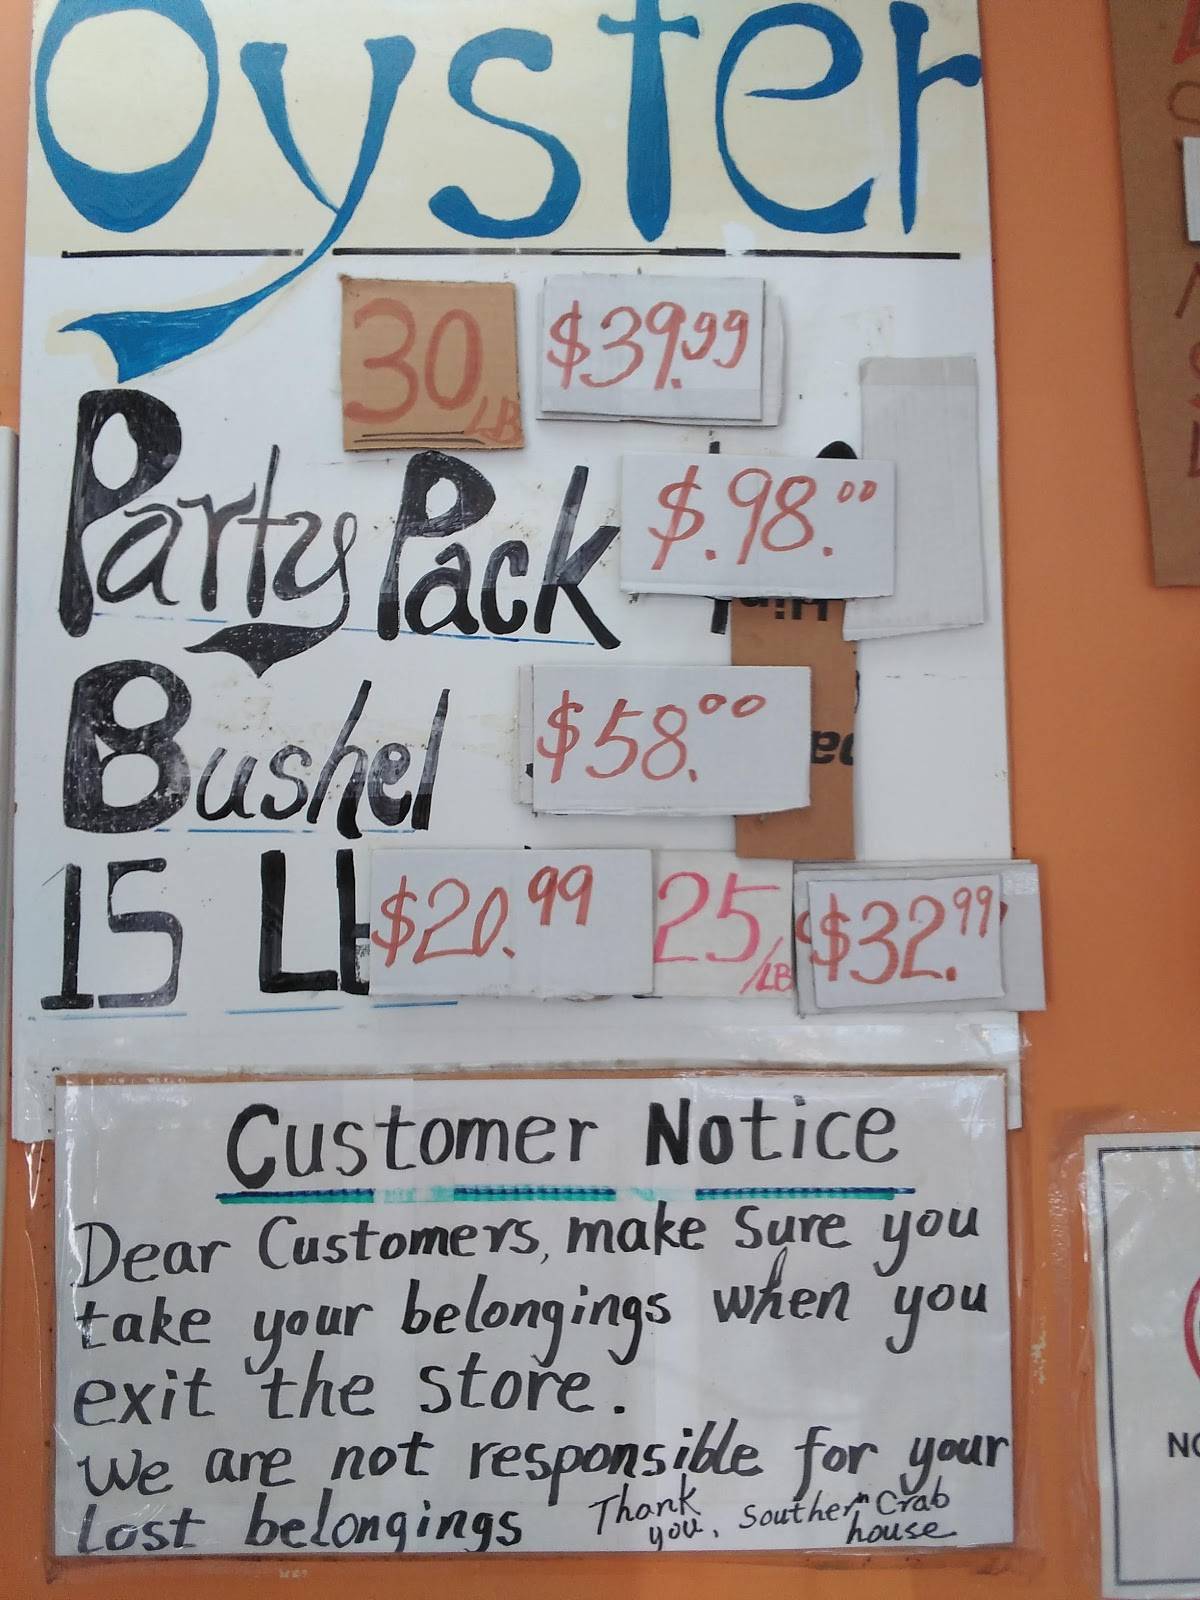 Oyster
30 LB $39.99
Party Pack $.98.00
Bushel $58.00
15 LB $20.99 25/LB $32.99
Customer Notice
Dear Customers, make sure you
take your belongings when you
exit the store.
We are not responsible for your
Lost belongings Thank you, Southern Crab house